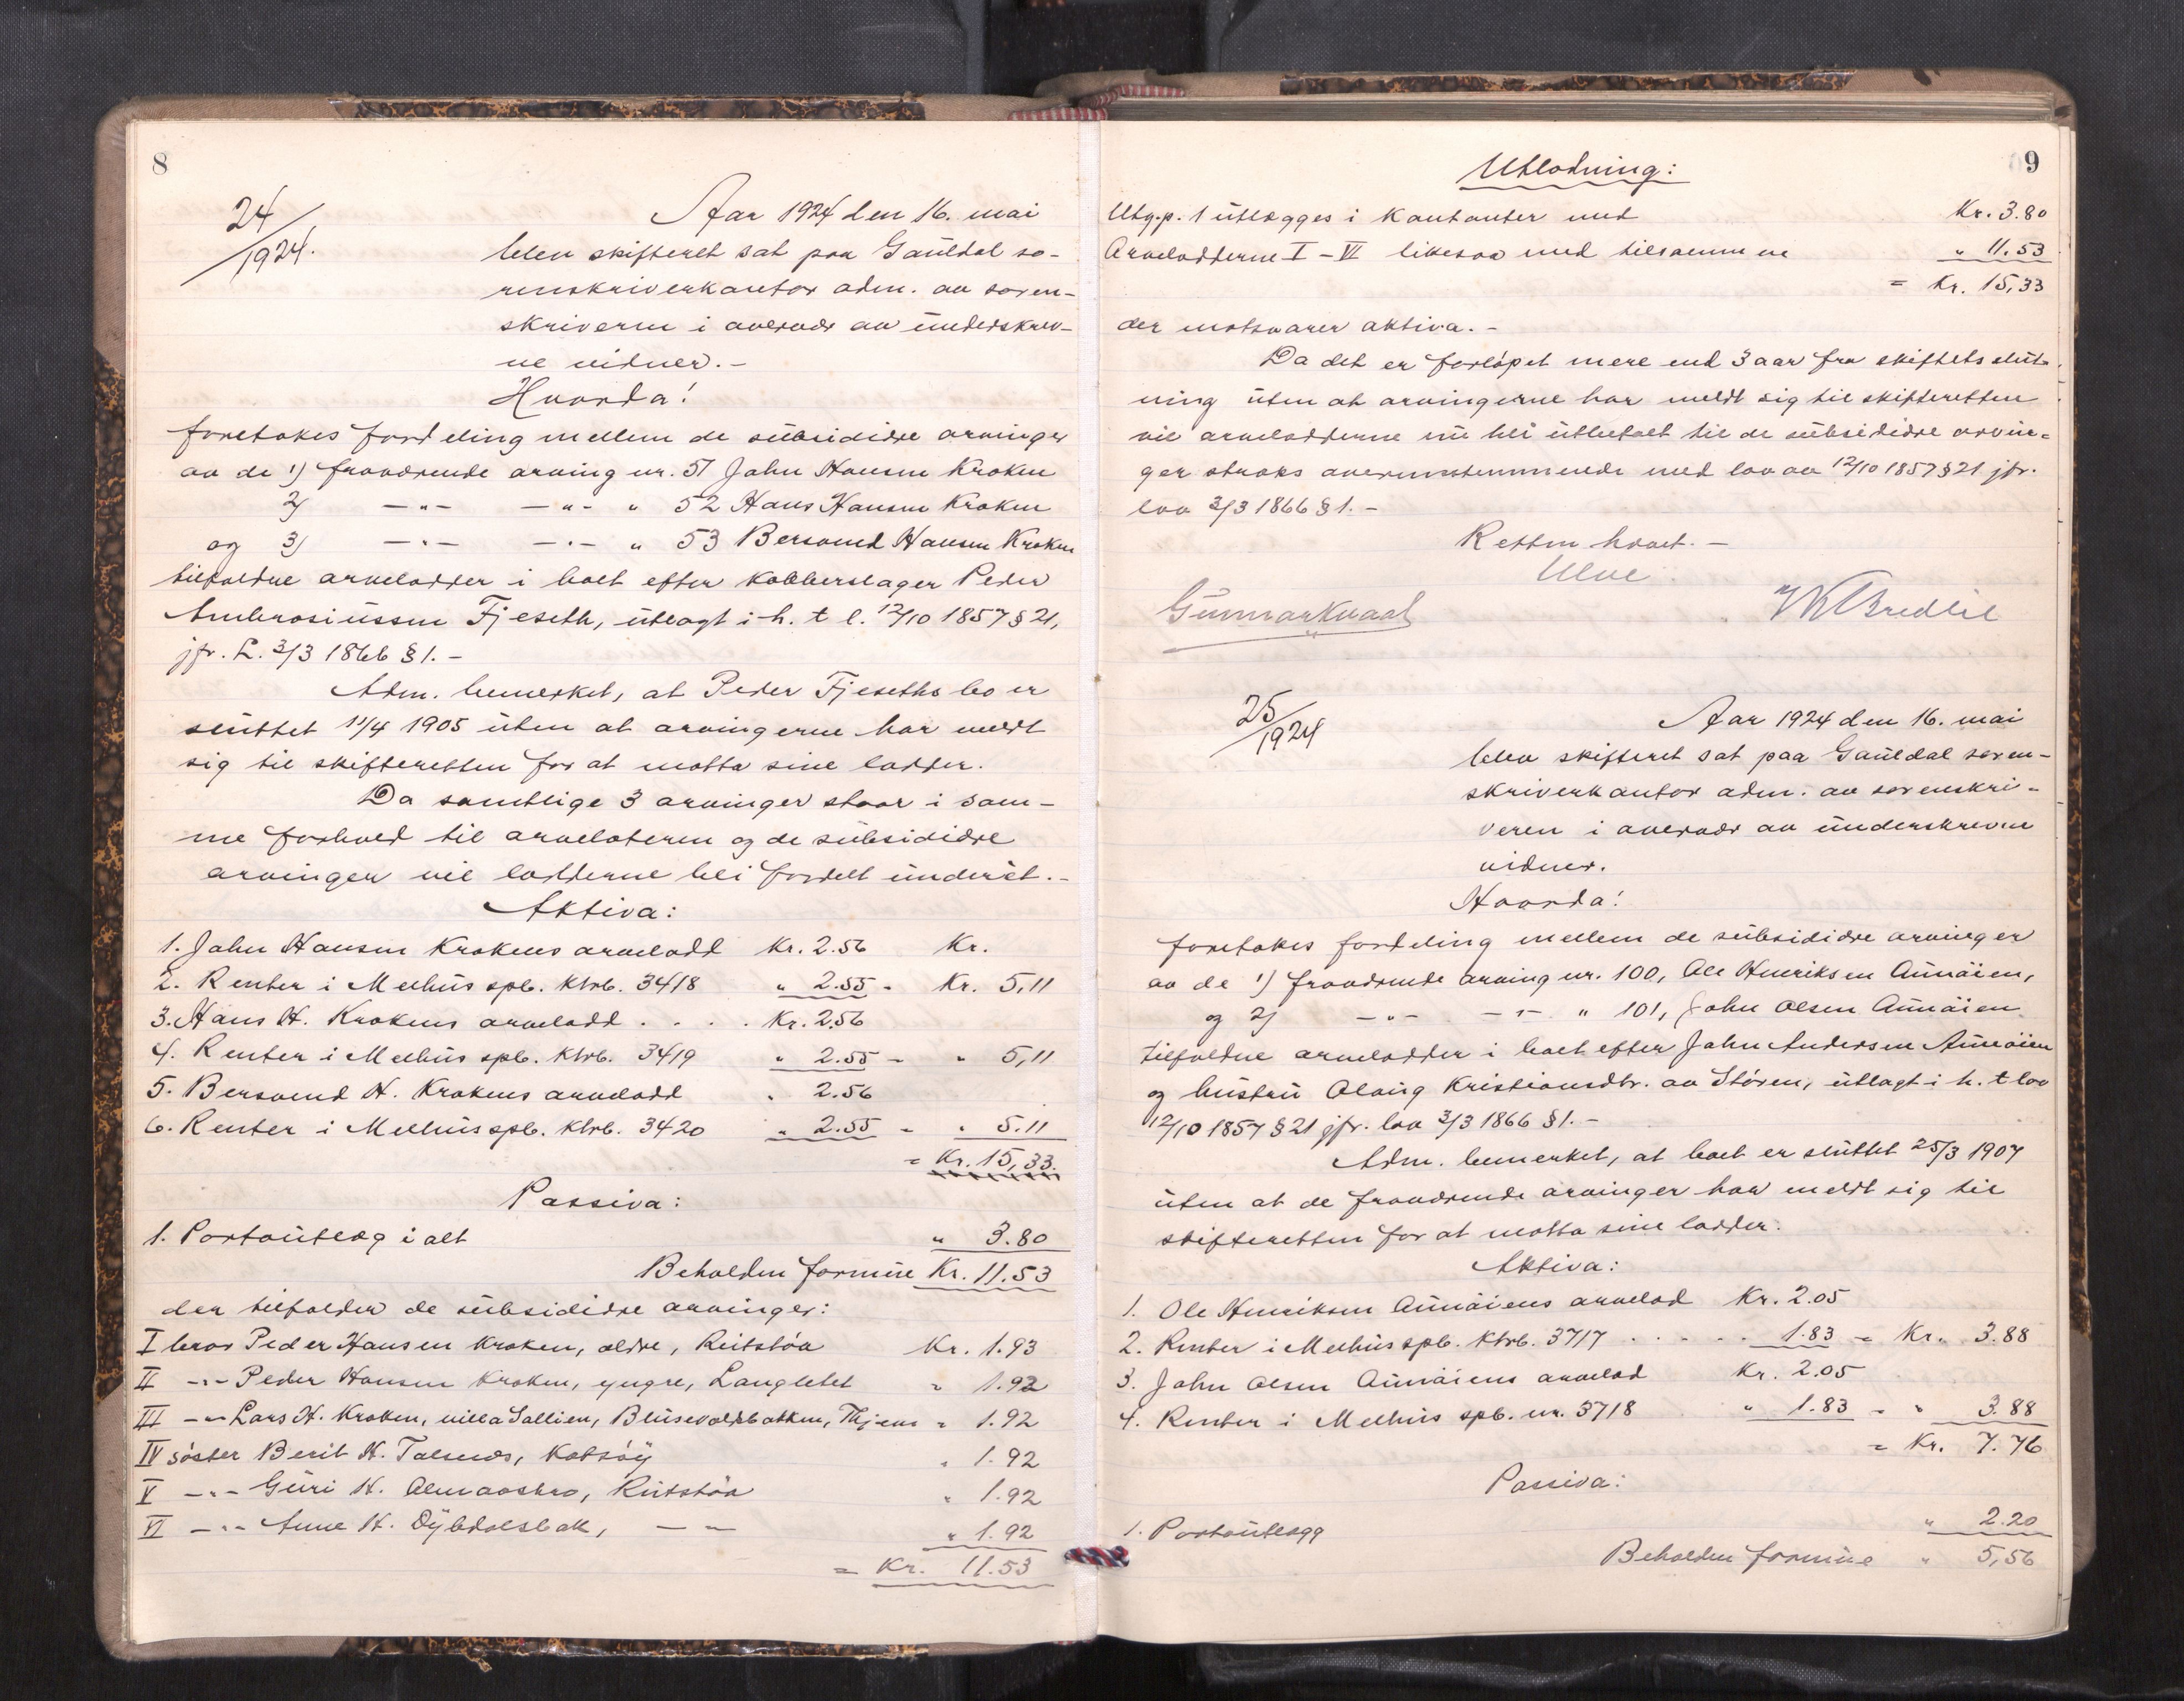 8
24/1924.
Aar 1924 den 16. mai
blev skifteret sat paa Gauldal so-
renskriverkontor adm. av soren-
skriveren i overvær av underskrev-
ne vidner.-
Hvorda!
foretokes fordeling mellem de subsidiære arvinger
av de 1) fraværende arving nr. 51 John Hansen Kroken
2) -"- -"- " 52 Hans Hansen Kroken
og 3) -"- -"- " 53 Bersvend Hansen Kroken
tilfaldne arvelodder i boet efter kobberslager Peder
Ambrosiussen Fjeseth, utlagt i h. t l. 12/10 1857 § 21,
jfr. L. 3/3 1866 § 1.-
Adm. bemerket, at Peder Fjeseths bo er
sluttet 11/4 1905 uten at arvingerne har meldt
sig til skifteretten for at motta sine lodder.
Da samtlige 3 arvinger staar i sam-
me forhold til arvelateren og de subsidiære
arvinger vil lodderne bli fordelt under ét.-
Aktiva:
1. John Hansen Krokens arvelodd Kr. 2.56 Kr.
2. Renter i Melhus spb. ktrb. 3418 " 2.55 - Kr. 5,11
3. Hans H. Krokens arvelodd . . . . Kr. 2,56
4. Renter i Melhus spb. ktrb. 3419 " 2.55 - " 5,11
5. Bersvend H. Krokens arvelodd " 2.56
6. Renter i Melhus spb. ktrb. 3420 " 2.55 - " 5.11
= Kr. 15,33.
Passiva:
1. Portoutlæg i alt " 3.80
Beholden formue Kr. 11.53
der tilfalder de subsidiære arvinger:
I bror Peder Hansen Kroken, ældre, Reitstøa Kr. 1.93
II -"- Peder Hansen Kroken, yngre, Langletet " 1.92
III -"- Lars H. Kroken, villa Sollien, Blusevoldsbakken, Thjem " 1.92
IV søster Berit H. Talsnes, Kotsøy " 1.92
V -"- Guri H. Almaaskro, Reitstøa " 1.92
VI -"- Anne H. Dybdalsbak, -"- " 1.92
= Kr. 11.53
9
Utlodning:
Utg.p. 1 utlægges i kontanter med Kr. 3.80
Arvelodderne I - VI likesaa med tilsammen " 11.53
= Kr. 15,33
der motsvarer aktiva.-
Da det er forløpet mere end 3 aar fra skiftets slut-
ning uten at arvingerne har meldt sig til skifteretten
vil arvelodderne nu bli utbetalt til de subsidiære arvin-
ger straks overensstemmende med lov av 12/10 1857 § 21 jfr.
lov 3/3 1866 § 1.-
Retten hævet.-
Ulve
Gunnar Kvaal
25/1924
Aar 1924 den 16. mai
blev skifteret sat paa Gauldal soren-
skriverkontor adm. av sorenskri-
veren i overvær av underskrevne
vidner.
Hvorda!
foretokes fordeling mellem de subsidiære arvinger
av de 1) fraværende arving nr. 100, Ole Henriksen Aunøien,
og 2) -"- -"- " 101, John Olsen Aunøien
tilfaldne arvelodder i boet efter John Andersen Aunøien
og hustru Olaug Kristiansdtr. av Støren, utlagt i h. t lov
12/10 1857 § 21 jfr. lov 3/3 1866 § 1.-
Adm. bemerket, at boet er sluttet 25/3 1907
uten at de fraværende arvinger har meldt sig til
skifteretten for at motta sine lodder.
Aktiva:
1. Ole Henriksen Aunøiens arvelod Kr. 2.05
2. Renter i Melhus spb. ktrb. 3717 . . . . . 1.83 = Kr. 3.88
3. John Olsen Aunøiens arvelod Kr. 2.05
4. Renter i Melhus spb. nr. 3718 " 1.83 - " 3.88
= Kr. 7.76
Passiva:
1. Portoutlægg " 2.20
Beholden formue " 5,56